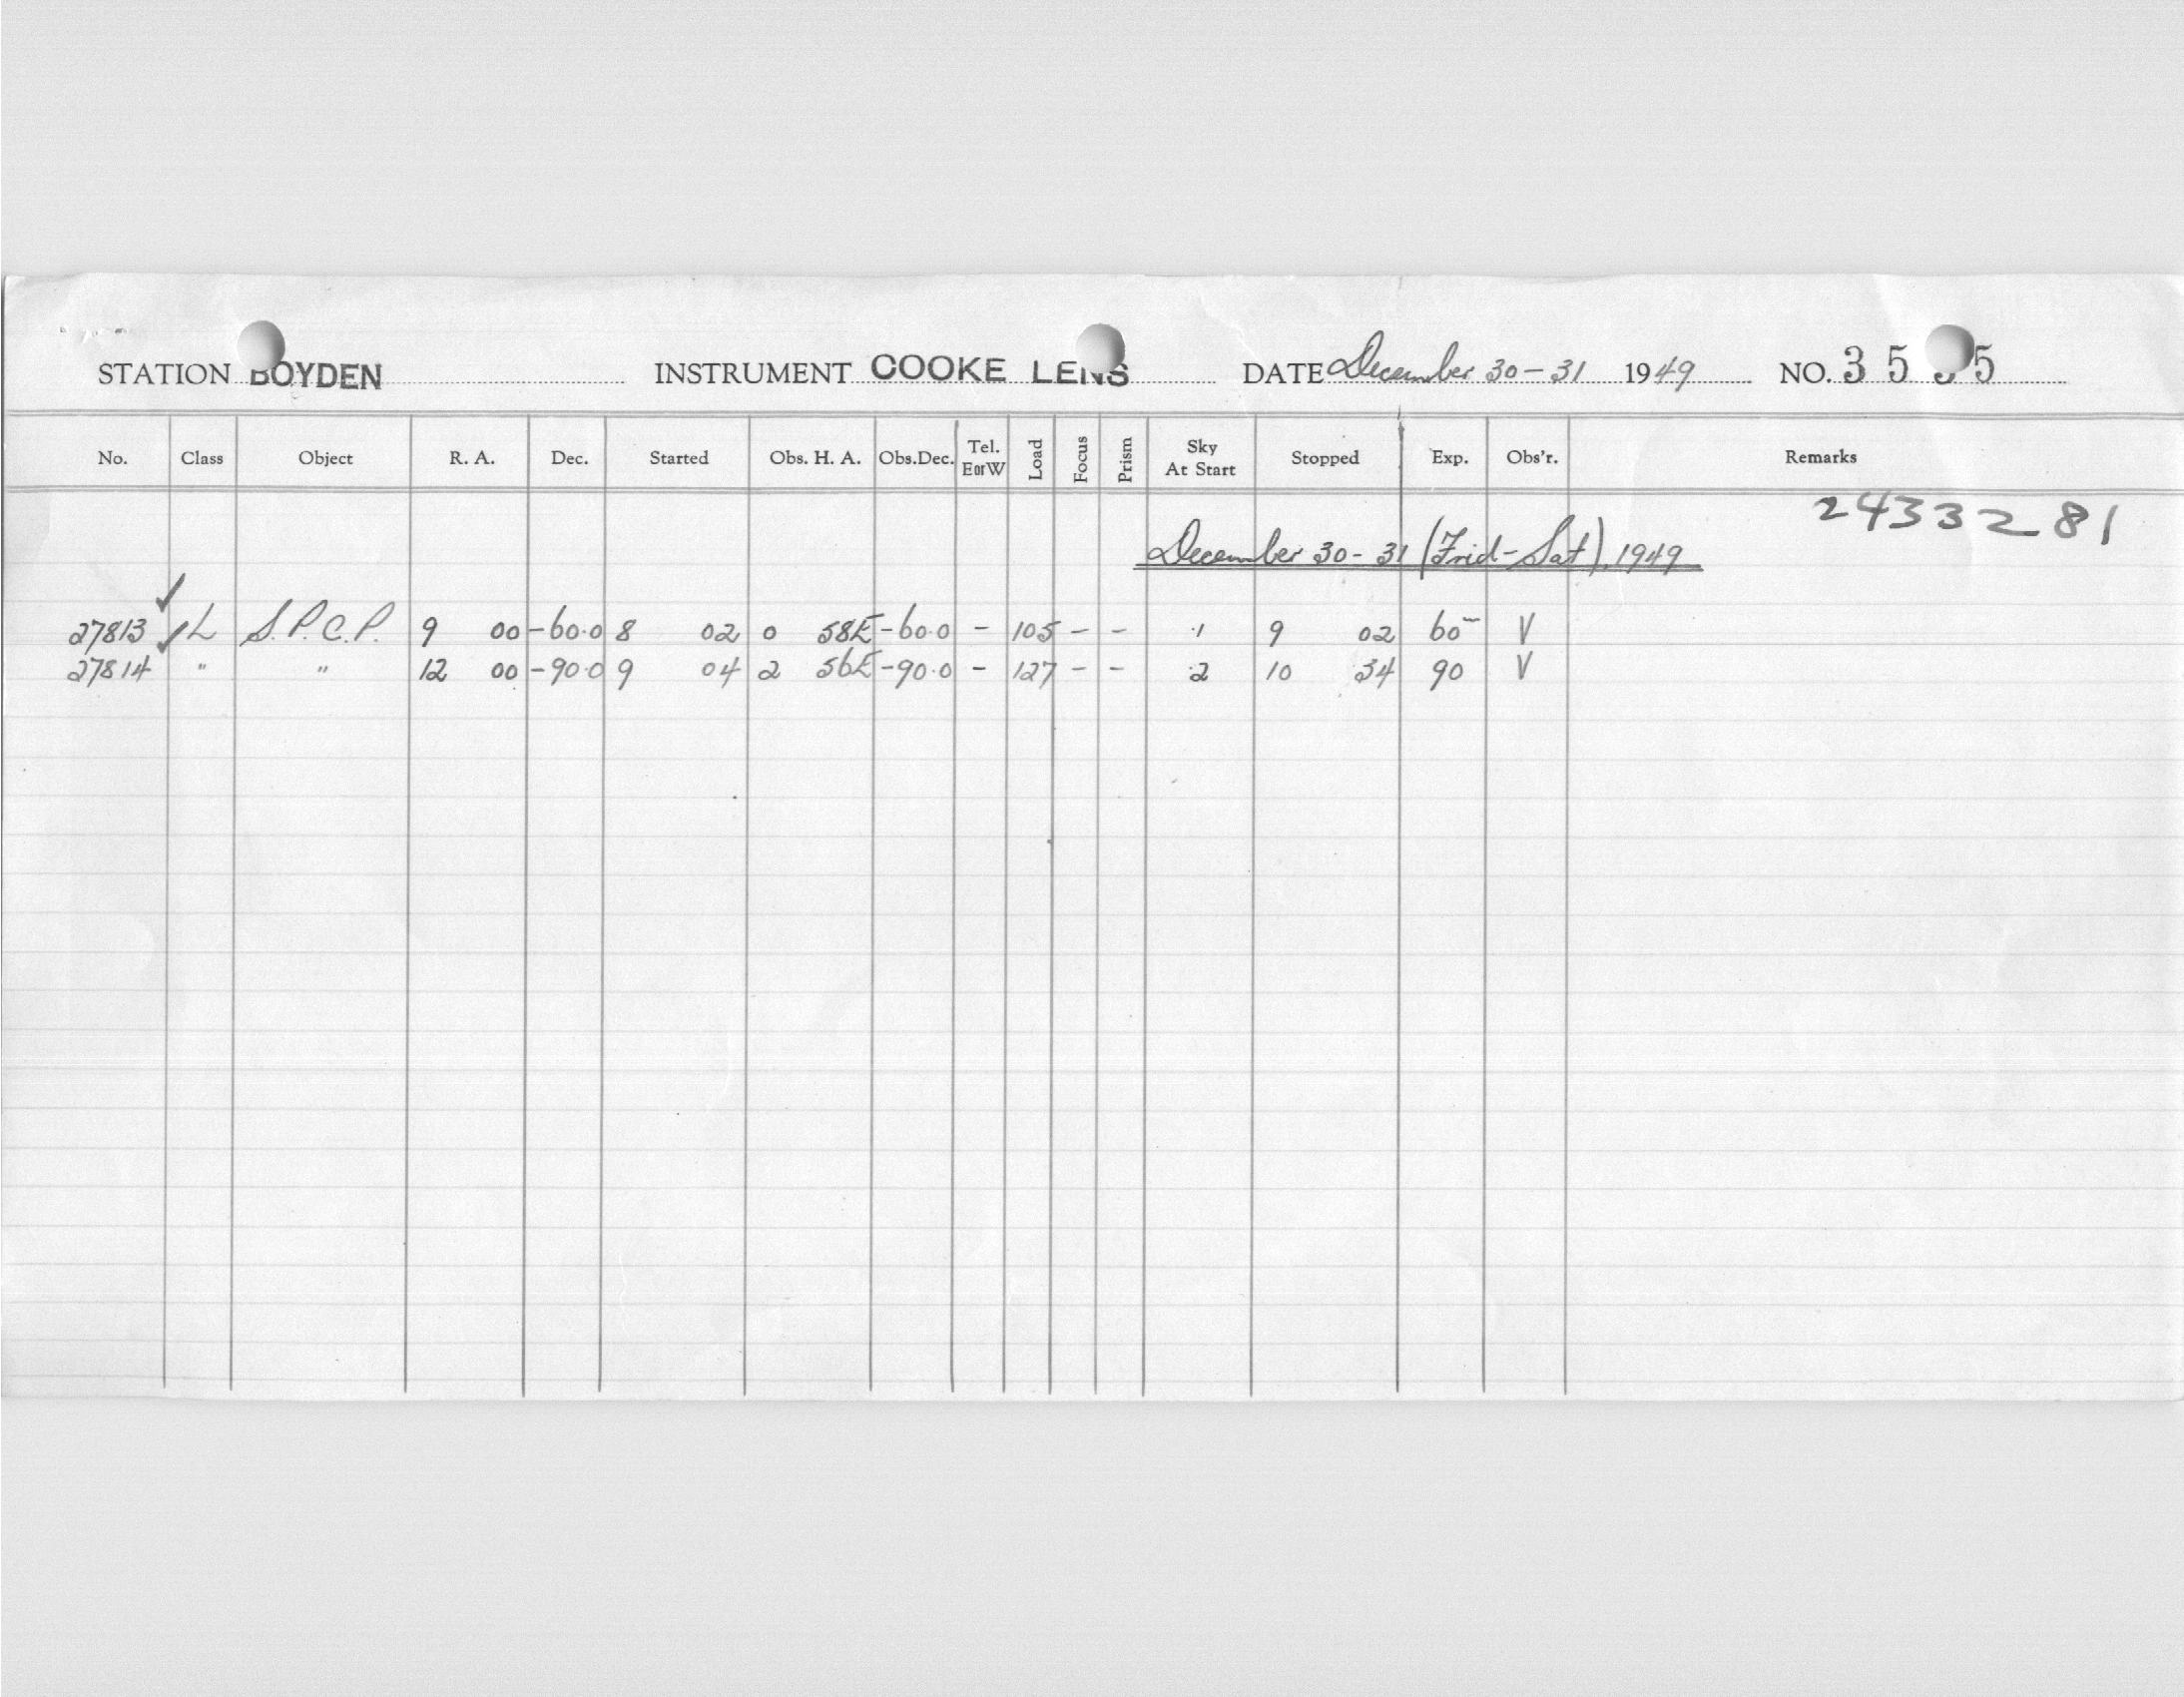 STATION BOYDEN INSTRUMENT COOKE LENS DATE December 30-31 1949 NO. 35 5
No. Class Object R. A. Dec. Started Obs. H. A. Obs.Dec. Tel. E or W Load Focus Prism Sky At Start Stopped Exp. Obs'r. Remarks
2433281
December 30-31 (Frid-Sat), 1949
27813 ✓ L S.P.C.P. 9 00 -60.0 8 02 0 58E -60.0 - 105 - - 1 9 02 60 V
27814 " " 12 00 -90.0 9 04 2 56E -90.0 - 127 - - 2 10 34 90 V